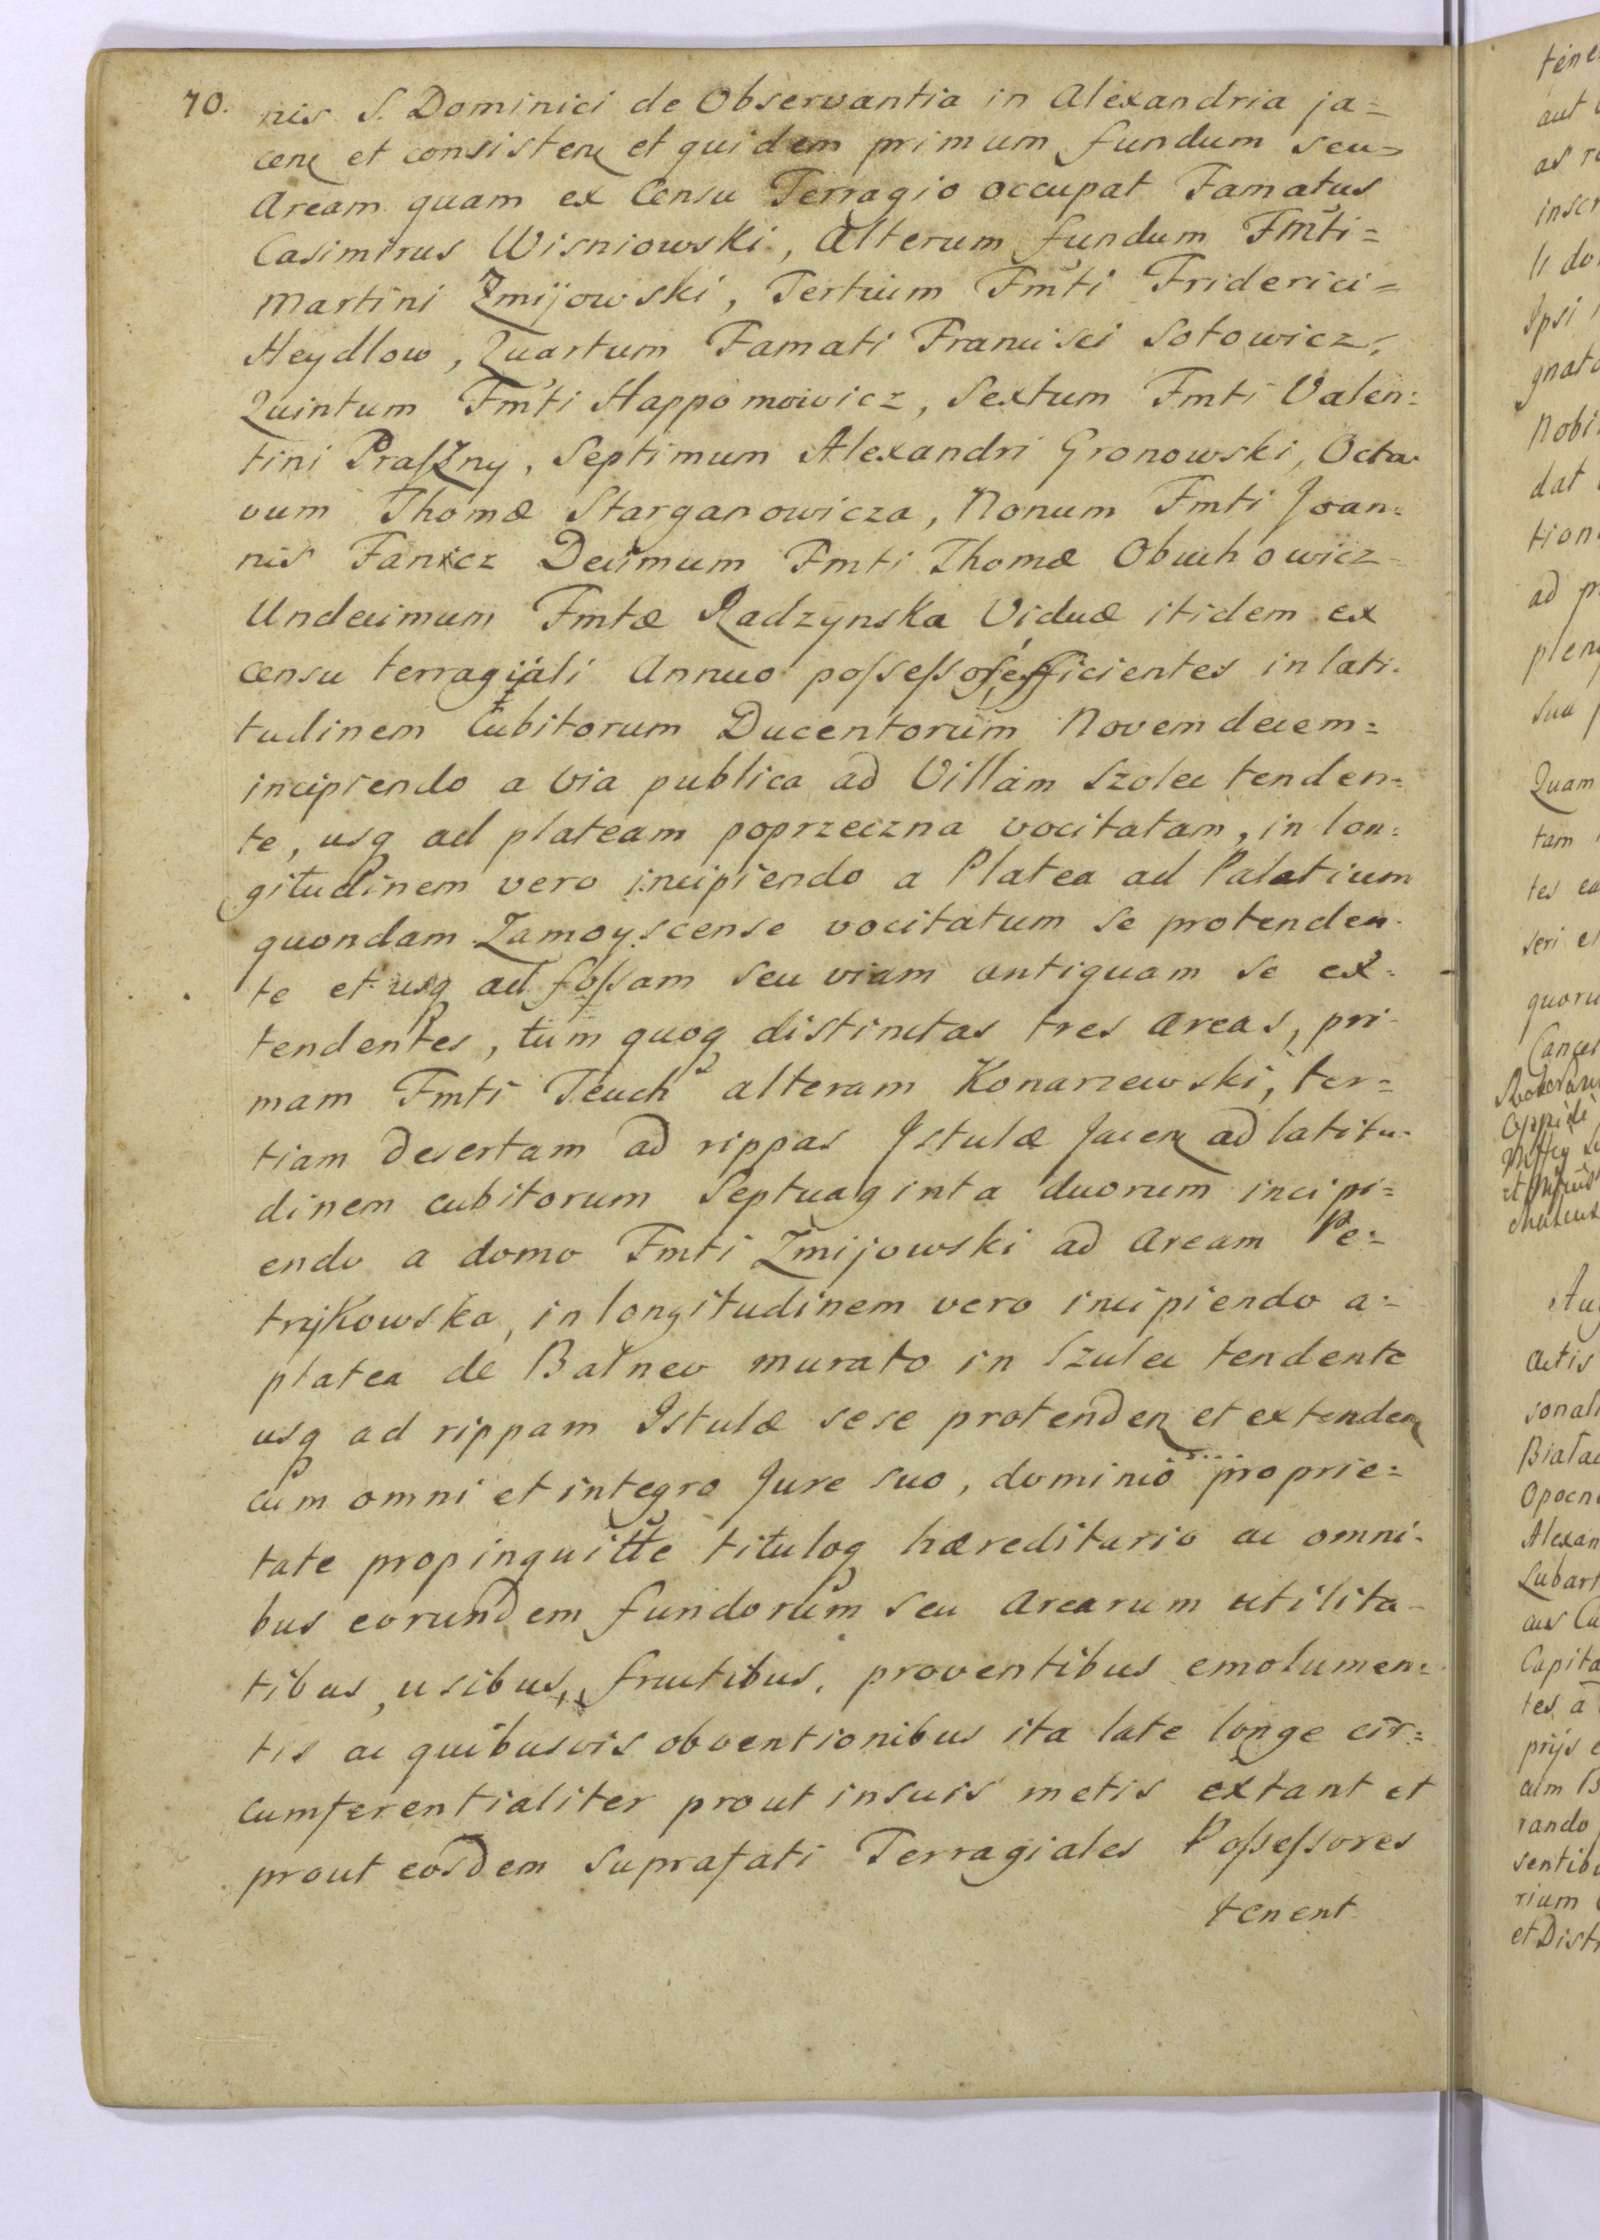 70.
nis S. Dominici de Observantia in Alexandria ja=
cen et consisten et quidem primum fundum seu=
Aream quam ex Censu Terragio occupat Famatus
Casimirus Wisniowski, Alterum fundum Fmti=
Martini Zmijowski, Tertium Fmti Friderici=
Heydlow, Quartum Famati Francisci Sotowicz,
Quintum Fmti Happomowicz, Sextum Fmti Valen=
tini Praſzny, Septimum Alexandri Gronowski, Octa=
vum Thomæ Starganowicza, Nonum Fmti Joan=
nis Fanicz Decimum Fmti Thomæ Obuchowicz
Undecimum Fmtæ Radzynska Viduæ itidem ex
censu terragiali Annuo poſseſsos, efficientes in lati=
tudinem Cubitorum Ducentorum Novemdecem=
incipiendo a via publica ad Villam Szolec tenden=
te, usq ad plateam poprzeczna vocitatam, in lon=
gitudinem vero incipiendo a Platea ad Palatium
quondam Zamoyscense vocitatum se protenden=
te et usq ad foſsam seu viam antiquam se ex=
tendentes, tum quoq distinctas tres areas, pri=
mam Fmti Teuch alteram Konarzewski, ter=
tiam desertam ad rippas Istulæ jacen ad latitu=
dinem cubitorum Septuaginta duorum incipi=
endo a domo Fmti Zmijowski ad Aream Pe=
trykowska, in longitudinem vero incipiendo a=
platea de Balneo murato in Szulec tendente
usq ad rippam Istulæ sese protenden et extenden
cum omni et integro Jure suo, dominio proprie=
tate propinquitte tituloq hæreditario ac omni=
bus eorundem fundorum seu Arearum utilita=
tibus, usibus, fructibus, proventibus emolumen=
tis ac quibusvis obventionibus ita late longe cir=
cumferentialiter prout in suis metis extant et
prout eosdem suprafati Terragiales Poſseſsores
tenent